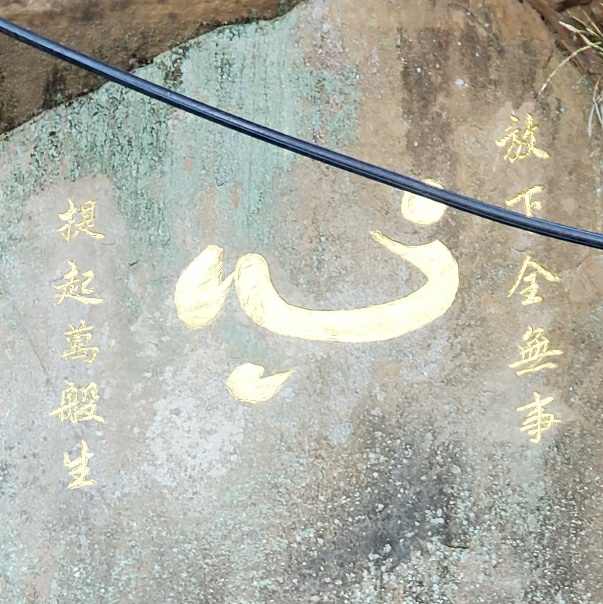 放下全無事
心
提起萬般生